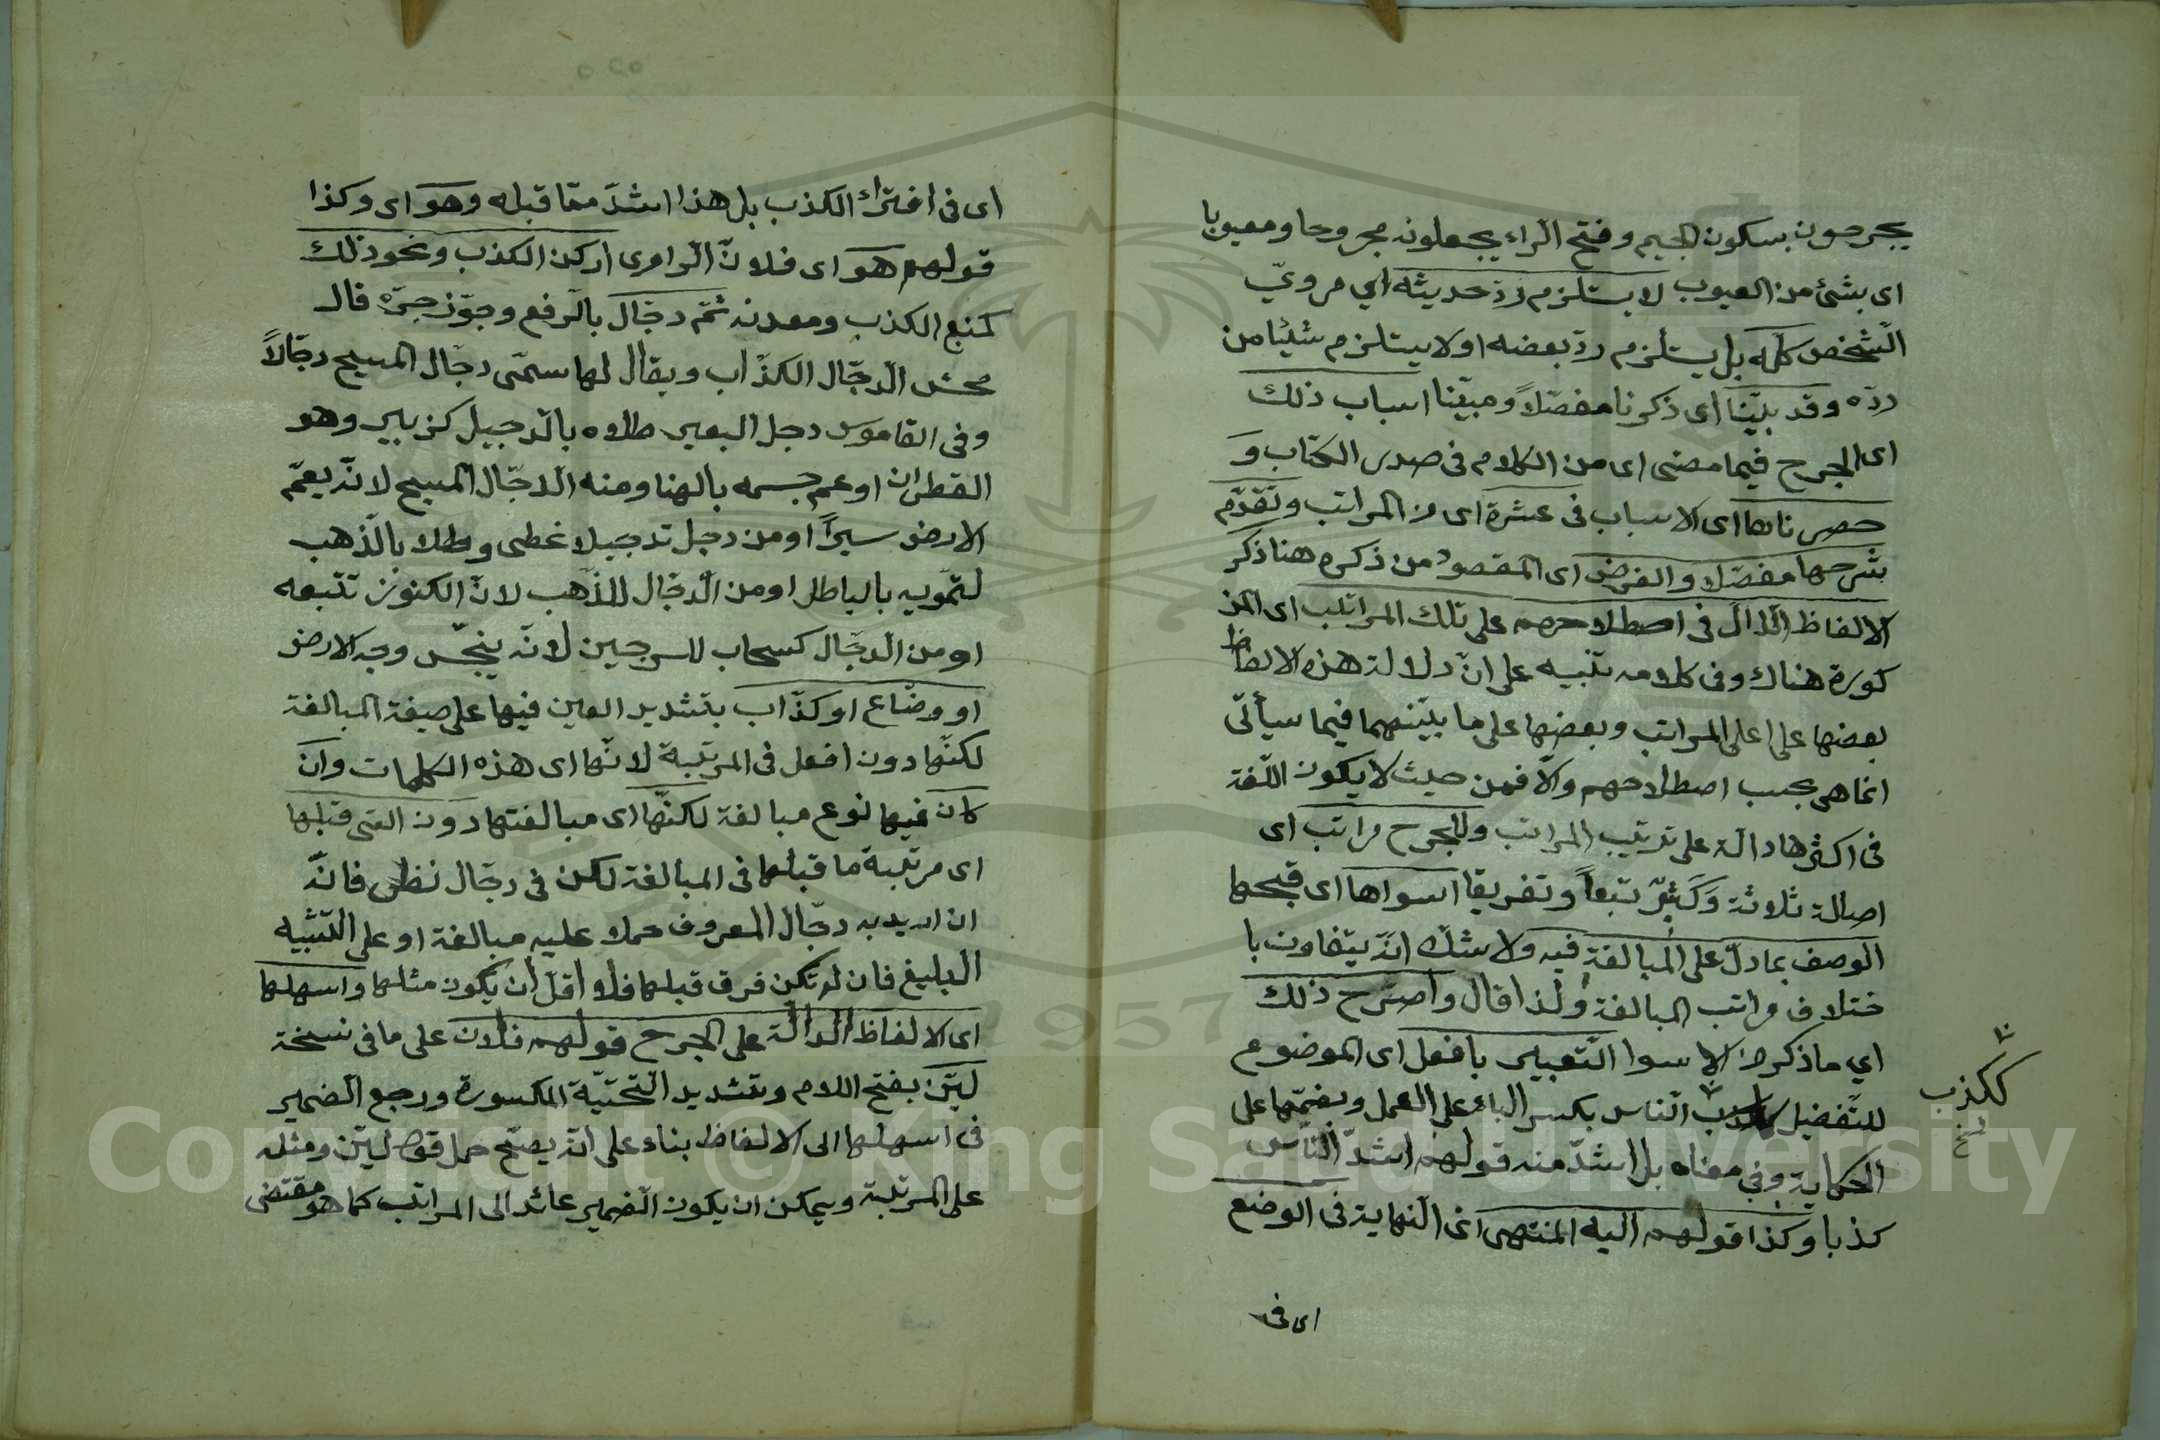 يجرحون بسكون الجيم وفتح الراء يجعلونه مجروحا ومعيوبا
اى بشئ من العيوب لا يستلزم ردّ حديثه اي مرويّ
الشخص كله بل يستلزم ردّ بعضه او لا يستلزم شيئا من
ردّه وقد بيّنّا اى ذكرنا مفصّلاً ومبيّنا اسباب ذلك
اى الجرح فيما مضى اى من الكلام فى صدر الكتاب وَ
حصرناها اى الاسباب فى عشرة اى من المراتب وتقدّم
شرحها مفصّلا والغرض اى المقصود من ذكره هنا ذكر
الالفاظ الدّالّ فى اصطلاحهم على تلك المراتب اى المذ
كورة هناك وفى كلامه تنبيه على انّ دلالة هذه الالفاظ
بعضها على اعلى المراتب وبعضها على ما بينهما فيما سيأتى
انما هى بحسب اصطلاحهم والّا فمن حيث لا يكون اللّغة
فى اكثرها دالة على ترتيب المراتب وللجرح مراتب اى
اصالة ثلاثة وَكَثِّرْ تبعاً وتفريقا اسواها اى قبحها
الوصف بما دلّ على المبالغة فيه ولا شكّ انّه يتفاوت با
ختلاف مراتب المبالغة ولذا قال واصرح ذلك
اي ما ذكر من الاسوا التّعبير بافعل اى الموضوع
للتّفضيل كاكذب النّاس بكسر الباء على العمل وبضمّها على
الحكاية وفى معناه بل اشدّ منه قولهم اشدّ النّاس
كذبا وكذا قولهم اليه المنتهى اى النهاية فى الوضع
ككذب
نخ
اى فى
اى فى افتراء الكذب بل هذا اشدّ ممّا قبله وهو اى وكذا
قولهم هو اى فلان الراوى اركن الكذب ونحو ذلك
كمنبع الكذب ومعدنه ثمّ دجّال بالرفع وجوّز جرّه قال
محش الدجّال الكذّاب ويقال لها سمّى دجّال المسيح دجّالاً
وفى القاموس دجل البعير طلاه بالدجيل كزبير وهو
القطران او عم جسمه بالهنا ومنه الدجّال المسيح لانّه يعمّ
الارض سيراً او من دجل تدجيلا غطى وطلا بالذهب
لتمويه بالباطل او من الدجّال للذّهب لانّ الكنوز تتبعه
او من الدجّال كسحاب للسرجين لانّه ينجّس وجه الارض
او وضّاع او كذّاب بتشديد العين فيها على صيغة المبالغة
لكنّها دون افعل فى المرتبة لانّها اى هذه الكلمات وان
كان فيها نوع مبالغة لكنّها اى مبالغتها دون التى قبلها
اى مرتبة ما قبلها فى المبالغة لكن فى دجّال نظر فانّه
ان اريد به دجّال المعروف حملا عليه مبالغة او على التشبيه
البليغ فان لم تكن فرق قبلها فلا اقل ان يكون مثلها واسهلها
اى الالفاظ الدالّة على الجرح قولهم فلان على ما فى نسخة
ليّن بفتح اللام وتشديد التّحتيّة المكسورة ورجع الضمير
فى اسهلها الى الالفاظ بناء على انّه يصحّ حمل قولهم ليّن ومثله
على المرتبة ويمكن ان يكون الضمير عائد الى المراتب كما هو مقتضى